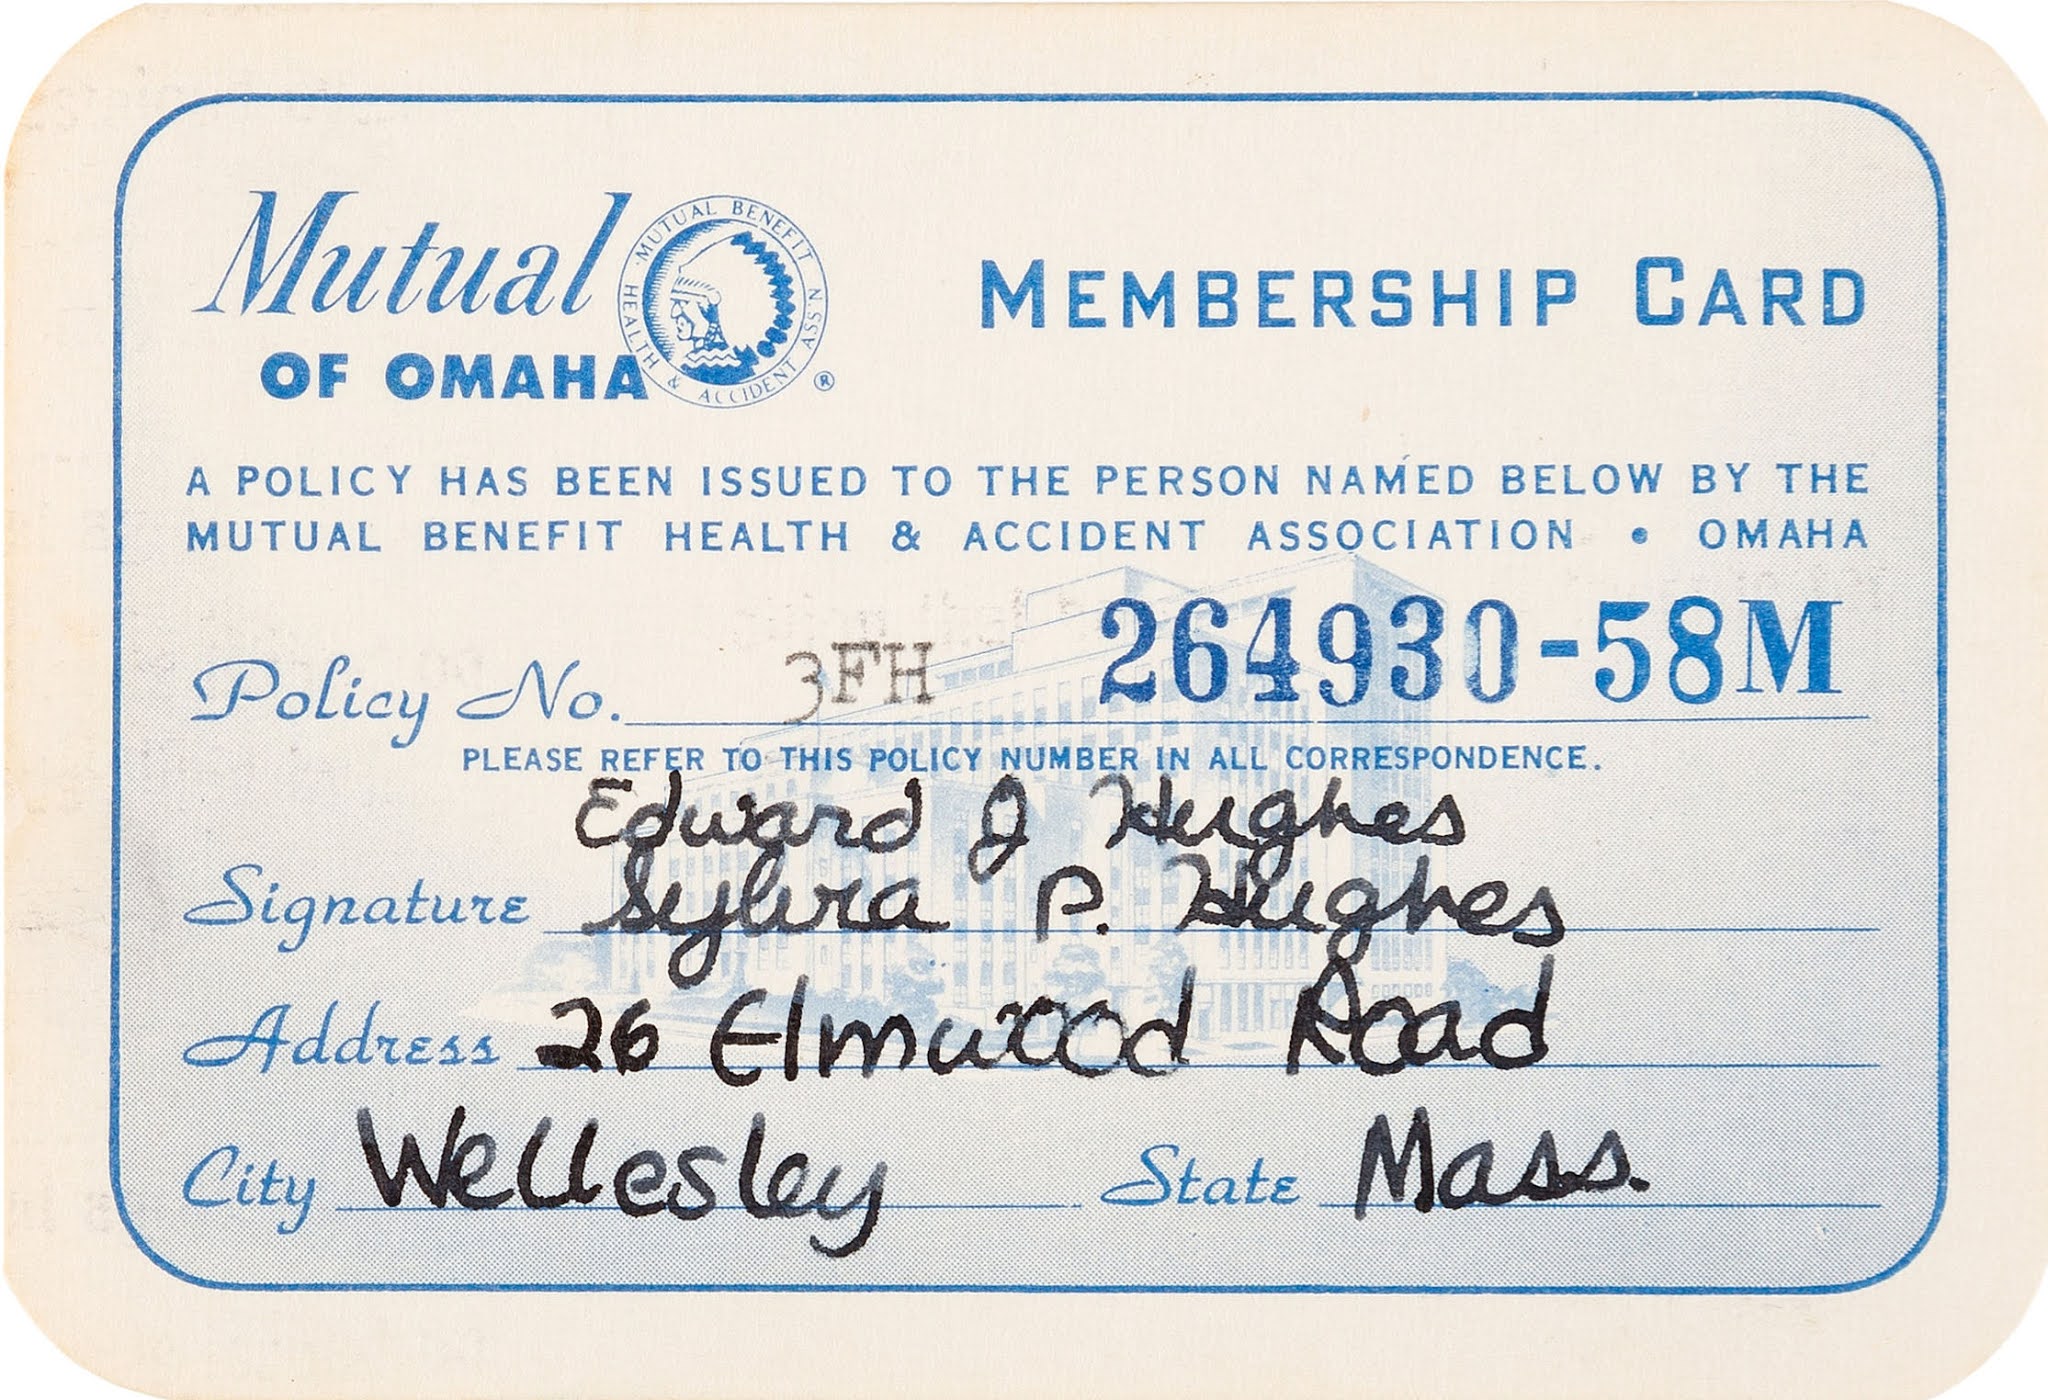 Mutual
OF OMAHA
MUTUAL BENEFIT HEALTH & ACCIDENT ASS'N.
®
MEMBERSHIP CARD
A POLICY HAS BEEN ISSUED TO THE PERSON NAMED BELOW BY THE
MUTUAL BENEFIT HEALTH & ACCIDENT ASSOCIATION • OMAHA
Policy No. 3FH 264930-58M
PLEASE REFER TO THIS POLICY NUMBER IN ALL CORRESPONDENCE.
Edward J Hughes
Signature Sylvia P. Hughes
Address 26 Elmwood Road
City Wellesley State Mass.